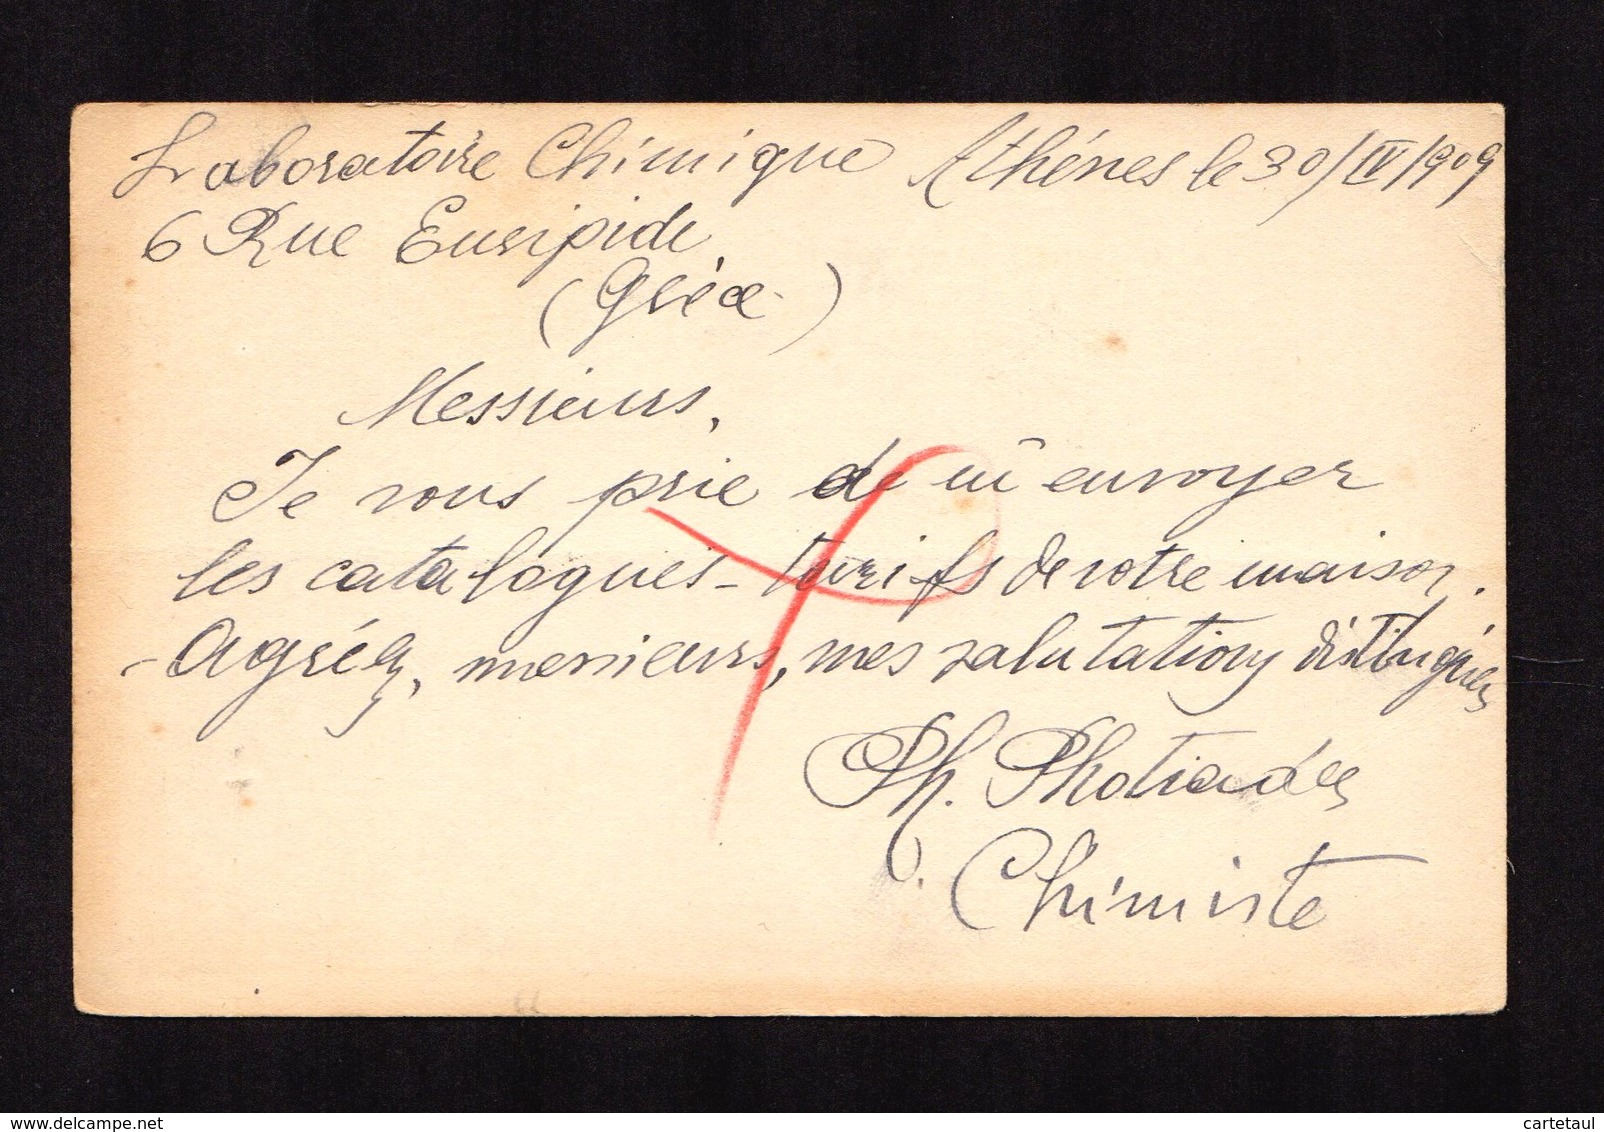 Laboratoire Chimique Athénes le 30/IV/1909
6 Rue Euripide
(Grèce)
Messieurs,
Je vous prie de m'envoyer
les catalogues-tarifs de votre maison.
Agréez, messieurs, mes salutations distinguées
Ph. Photiadès
Chimiste
delcampe.net
cartetaul